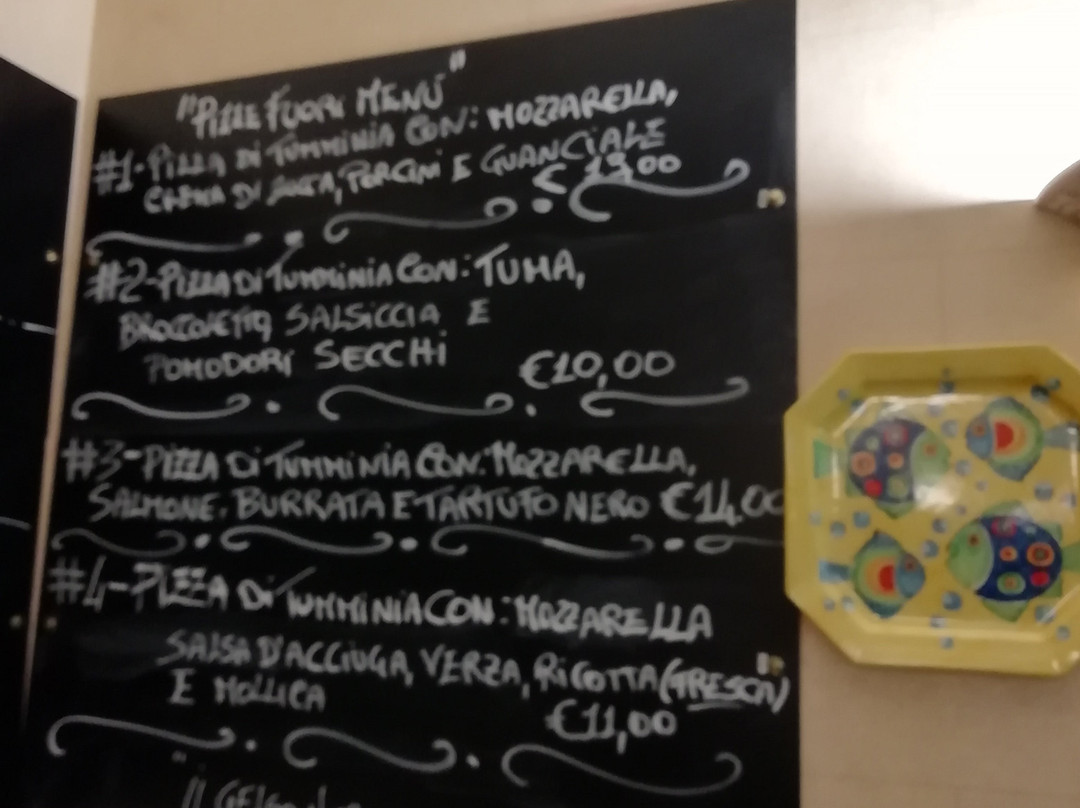 "PIZZE FUORI MENÙ"
#1-PIZZA DI TUMMINIA CON: MOZZARELLA,
CREMA DI ZUCCA, PORCINI E GUANCIALE
€ 13,00
#2-PIZZA DI TUMMINIA CON: TUMA,
BROCCOLETTO SALSICCIA E
POMODORI SECCHI €10,00
#3-PIZZA DI TUMMINIA CON: MOZZARELLA,
SALMONE, BURRATA E TARTUFO NERO €14,00
#4-PIZZA DI TUMMINIA CON: MOZZARELLA
SALSA D'ACCIUGA, VERZA, RICOTTA (FRESCA)
E MOLLICA
€11,00